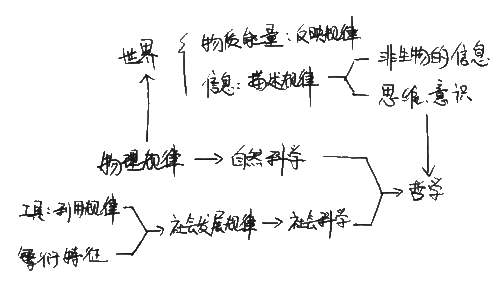 世界
物质能量：反映规律
信息：描述规律
非生物的信息
思维、意识
物理规律
自然科学
哲学
工具：利用规律
社会发展规律
社会科学
繁衍特征